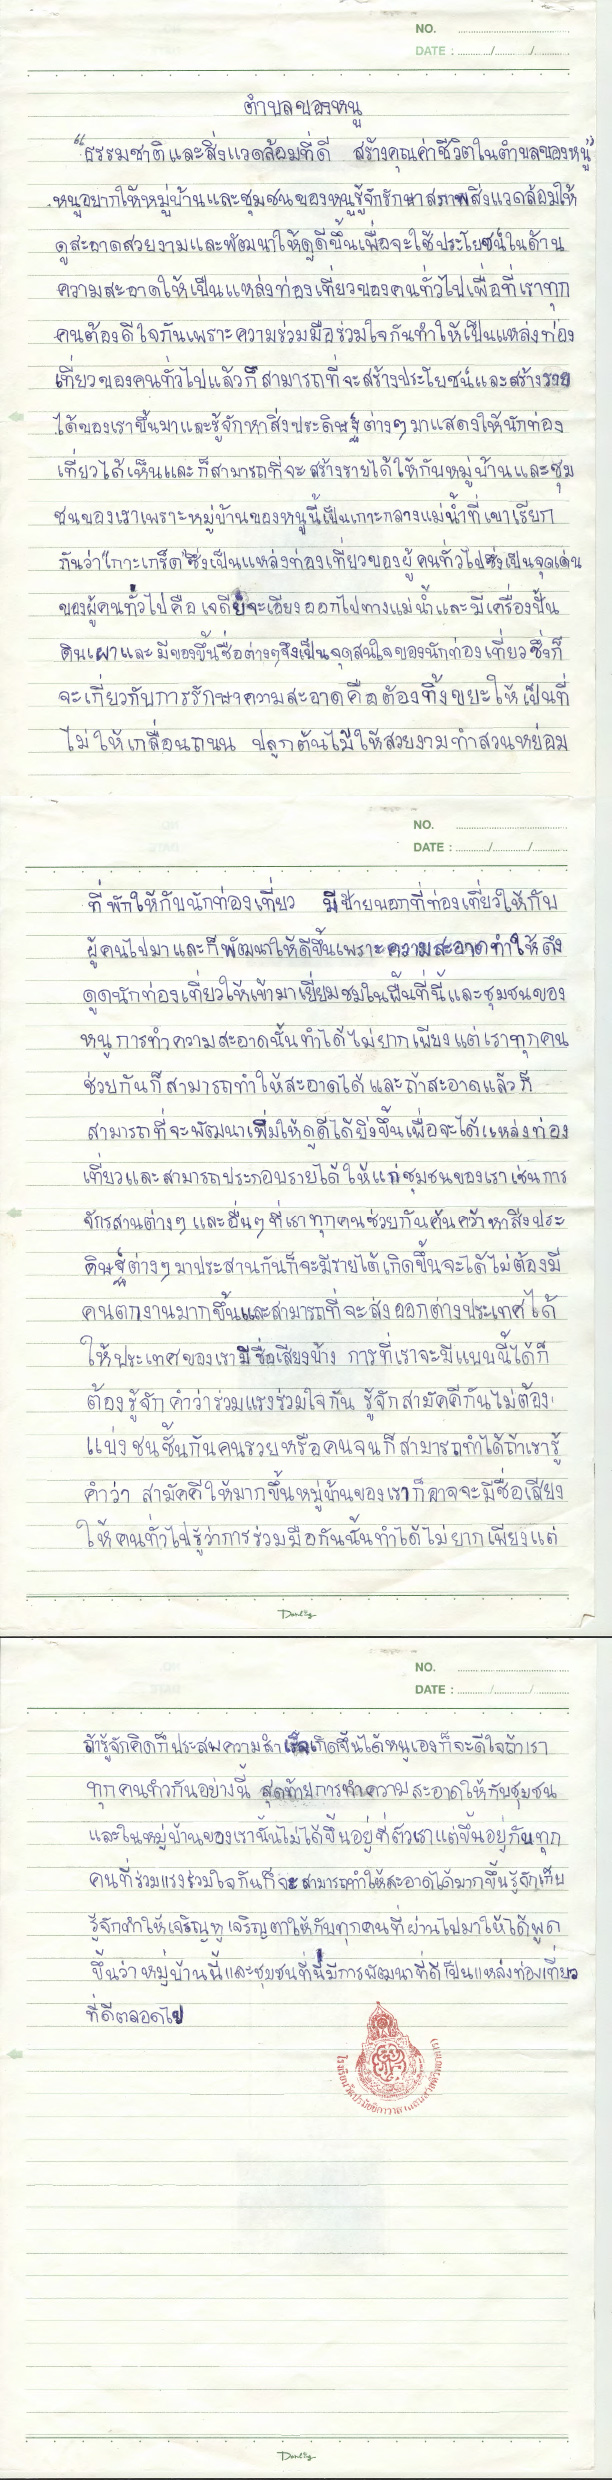 NO.
DATE : ........../........../..........
ตำบลของหนู
"ธรรมชาติและสิ่งแวดล้อมที่ดี สร้างคุณค่าชีวิตในตำบลของหนู"
หนูอยากให้หมู่บ้านและชุมชนของหนูรู้จักรักษาสภาพสิ่งแวดล้อมให้
ดูสะอาดสวยงามและพัฒนาให้ดูดีขึ้นเพื่อจะใช้ประโยชน์ในด้าน
ความสะอาดให้เป็นแหล่งท่องเที่ยวของคนทั่วไปเพื่อที่เราทุก
คนต้องดีใจกันเพราะความร่วมมือร่วมใจกันทำให้เป็นแหล่งท่อง
เที่ยวของคนทั่วไปแล้วก็สามารถที่จะสร้างประโยชน์และสร้างราย
ได้ของเราขึ้นมาและรู้จักหาสิ่งประดิษฐ์ต่างๆมาแสดงให้นักท่อง
เที่ยวได้เห็นและก็สามารถที่จะสร้างรายได้ให้กับหมู่บ้านและชุม
ชนของเราเพราะหมู่บ้านของหนูนี้เป็นเกาะกลางแม่น้ำที่เขาเรียก
กันว่า"เกาะเกร็ด"ซึ่งเป็นแหล่งท่องเที่ยวของผู้คนทั่วไปซึ่งเป็นจุดเด่น
ของผู้คนทั่วไปคือเจดีย์จะเอียงออกไปทางแม่น้ำและมีเครื่องปั้น
ดินเผาและมีของขึ้นชื่อต่างๆจึงเป็นจุดสนใจของนักท่องเที่ยวซึ่งก็
จะเกี่ยวกับการรักษาความสะอาดคือต้องทิ้งขยะให้เป็นที่
ไม่ให้เกลื่อนถนน ปลูกต้นไม้ให้สวยงามทำสวนหย่อม
NO.
DATE : ........../........../..........
ที่พักให้กับนักท่องเที่ยว มีป้ายบอกที่ท่องเที่ยวให้กับ
ผู้คนไปมาและก็พัฒนาให้ดีขึ้นเพราะความสะอาดทำให้ดึง
ดูดนักท่องเที่ยวให้เข้ามาเยี่ยมชมในพื้นที่นี้และชุมชนของ
หนูการทำความสะอาดนั้นทำได้ไม่ยากเพียงแต่เราทุกคน
ช่วยกันก็สามารถทำให้สะอาดได้ และถ้าสะอาดแล้วก็
สามารถที่จะพัฒนาเพิ่มให้ดูดีได้ยิ่งขึ้นเพื่อจะได้แหล่งท่อง
เที่ยวและสามารถประกอบรายได้ให้แก่ชุมชนของเราเช่นการ
จักรสานต่างๆ และอื่นๆที่เราทุกคนช่วยกันค้นคว้าหาสิ่งประ
ดิษฐ์ต่างๆมาประสานกันก็จะมีรายได้เกิดขึ้นจะได้ไม่ต้องมี
คนตกงานมากขึ้นและสามารถที่จะส่งออกต่างประเทศได้
ให้ประเทศของเรามีชื่อเสียงบ้าง การที่เราจะมีแบบนี้ได้ก็
ต้องรู้จักคำว่าร่วมแรงร่วมใจกัน รู้จักสามัคคีกันไม่ต้อง
แบ่งชนชั้นกันคนรวยหรือคนจนก็สามารถทำได้ถ้าเรารู้
คำว่า สามัคคีให้มากขึ้นหมู่บ้านของเราก็อาจจะมีชื่อเสียง
ให้คนทั่วไปรู้ว่าการร่วมมือกันนั้นทำได้ไม่ยากเพียงแต่
NO.
DATE : ........../........../..........
ถ้ารู้จักคิดก็ประสบความสำเร็จเกิดขึ้นได้หนูเองก็จะดีใจถ้าเรา
ทุกคนทำกันอย่างนี้ สุดท้ายการทำความสะอาดให้กับชุมชน
และในหมู่บ้านของเรานั้นไม่ได้ขึ้นอยู่ที่ตัวเราแต่ขึ้นอยู่กับทุก
คนที่ร่วมแรงร่วมใจกันก็จะสามารถทำให้สะอาดได้มากขึ้นรู้จักเก็บ
รู้จักทำให้เจริญหูเจริญตาให้กับทุกคนที่ผ่านไปมาให้ได้พูด
ขึ้นว่าหมู่บ้านนี้และชุมชนที่นี่มีการพัฒนาที่ดีเป็นแหล่งท่องเที่ยว
ที่ดีตลอดไป